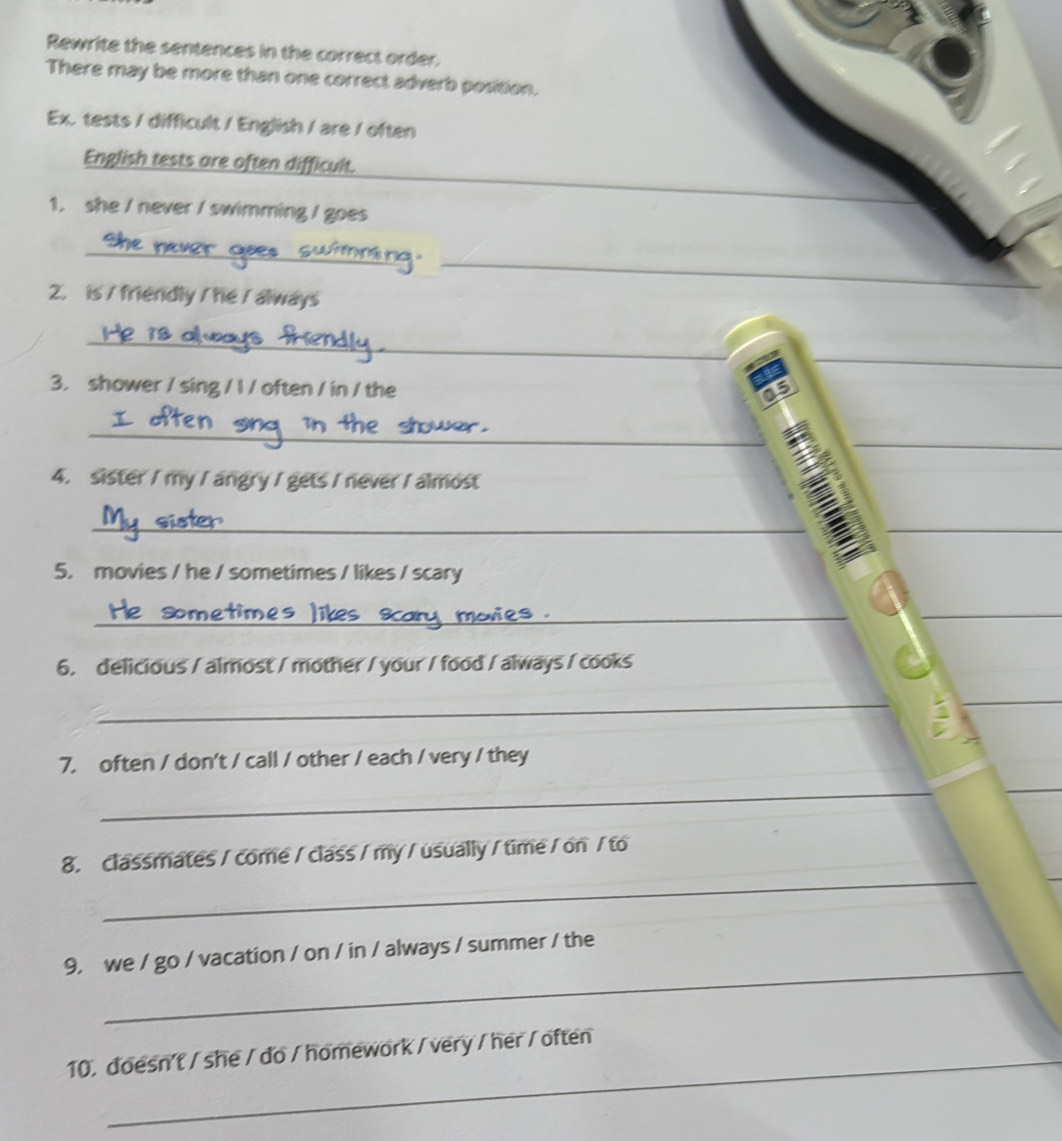 Rewrite the sentences in the correct order.
There may be more than one correct adverb position.
Ex. tests / difficult / English / are / often
English tests are often difficult.
1. she / never / swimming / goes
She never goes swimming.
2. is / friendly / he / always
He is always friendly.
3. shower / sing / I / often / in / the
I often sing in the shower.
4. sister / my / angry / gets / never / almost
My sister
5. movies / he / sometimes / likes / scary
He sometimes likes scary movies.
6. delicious / almost / mother / your / food / always / cooks
7. often / don't / call / other / each / very / they
8. classmates / come / class / my / usually / time / on / to
9. we / go / vacation / on / in / always / summer / the
10. doesn't / she / do / homework / very / her / often
0.5